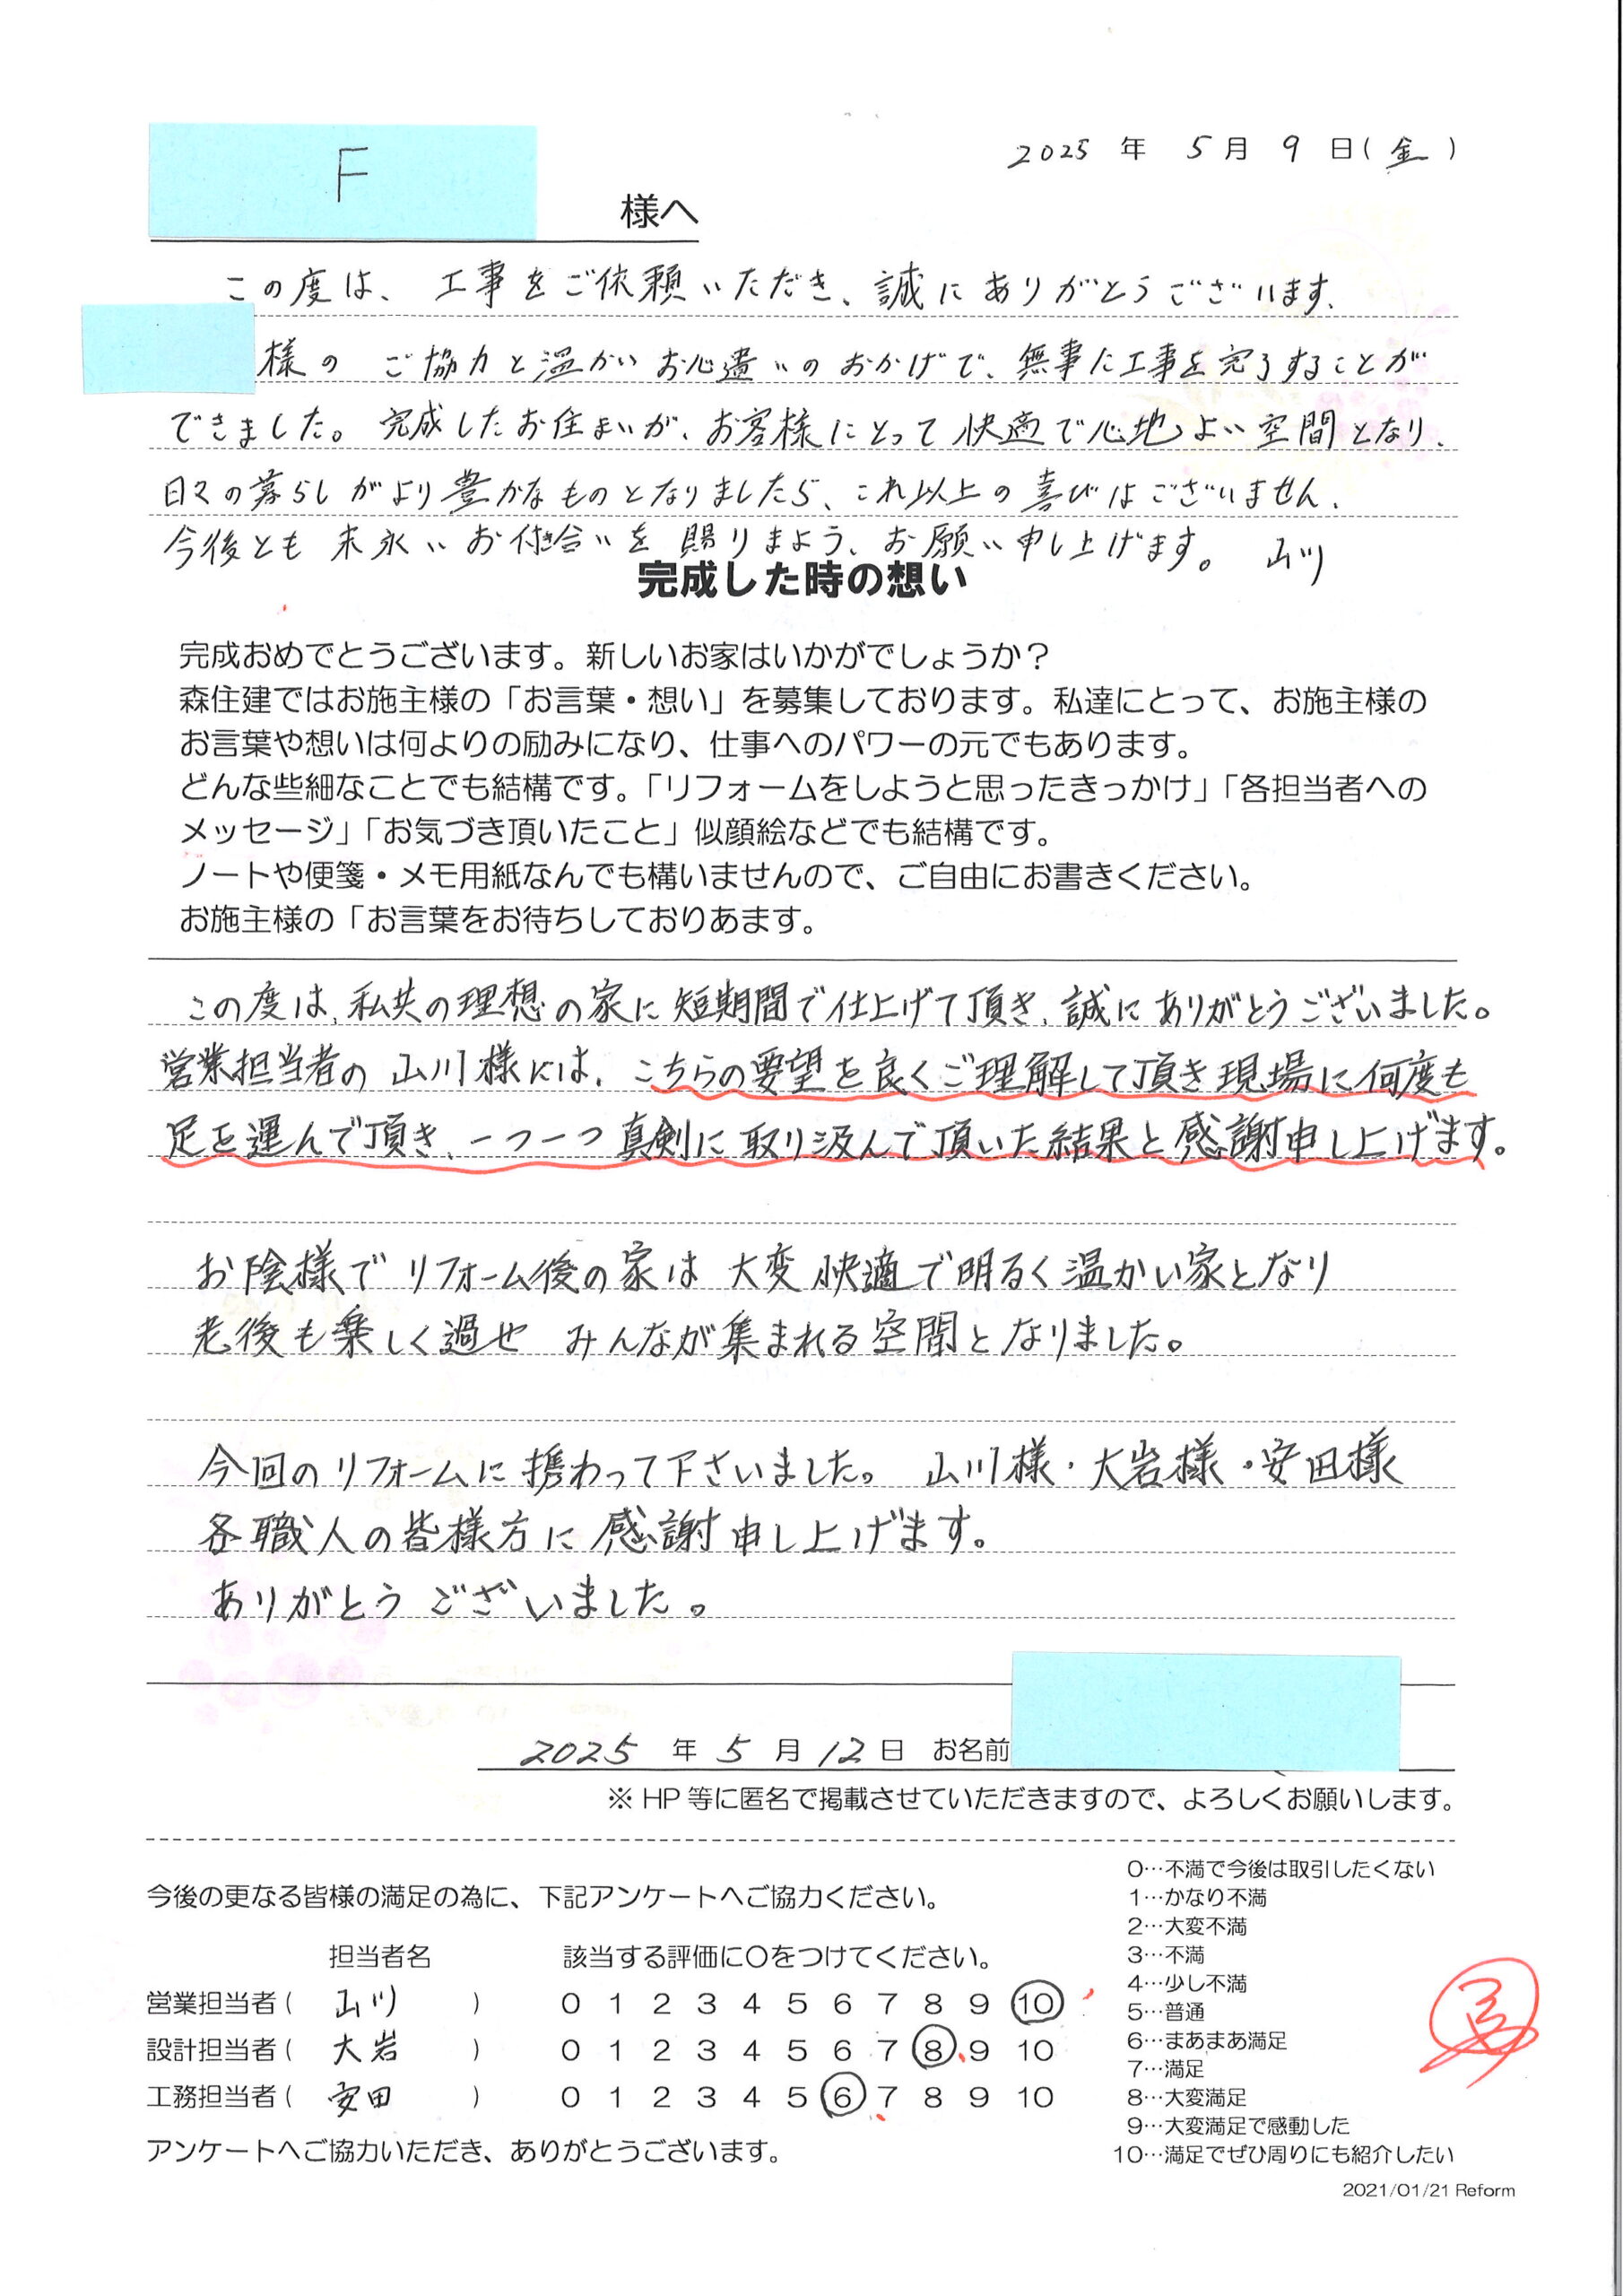 2025 年 5 月 9 日(金)
F 様へ
この度は、工事をご依頼いただき、誠にありがとうございます。
様の ご協力と温かいお心遣いのおかげで、無事に工事を完了することが
できました。完成したお住まいが、お客様にとって快適で心地よい空間となり、
日々の暮らしがより豊かなものとなりましたら、これ以上の喜びはございません。
今後とも末永いお付き合いを賜りますよう、お願い申し上げます。 山川
完成した時の想い
完成おめでとうございます。新しいお家はいかがでしょうか？
森住建ではお施主様の「お言葉・想い」を募集しております。私達にとって、お施主様の
お言葉や想いは何よりの励みになり、仕事へのパワーの元でもあります。
どんな些細なことでも結構です。「リフォームをしようと思ったきっかけ」「各担当者への
メッセージ」「お気づき頂いたこと」似顔絵などでも結構です。
ノートや便箋・メモ用紙なんでも構いませんので、ご自由にお書きください。
お施主様の「お言葉をお待ちしておりあます。
この度は、私共の理想の家に短期間で仕上げて頂き、誠にありがとうございました。
営業担当者の山川様には、こちらの要望を良くご理解して頂き現場に何度も
足を運んで頂き、一つ一つ真剣に取り汲んで頂いた結果と感謝申し上げます。
お陰様でリフォーム後の家は大変快適で明るく温かい家となり
老後も楽しく過せ みんなが集まれる空間となりました。
今回のリフォームに携わって下さいました。 山川様・大岩様・安田様
各職人の皆様方に感謝申し上げます。
ありがとうございました。
2025 年 5 月 12 日 お名前
※ HP 等に匿名で掲載させていただきますので、よろしくお願いします。
今後の更なる皆様の満足の為に、下記アンケートへご協力ください。
担当者名 該当する評価に〇をつけてください。
営業担当者( 山川 ) 0 1 2 3 4 5 6 7 8 9 10
設計担当者( 大岩 ) 0 1 2 3 4 5 6 7 8 9 10
工務担当者( 安田 ) 0 1 2 3 4 5 6 7 8 9 10
アンケートへご協力いただき、ありがとうございます。
0…不満で今後は取引したくない
1…かなり不満
2…大変不満
3…不満
4…少し不満
5…普通
6…まあまあ満足
7…満足
8…大変満足
9…大変満足で感動した
10…満足でぜひ周りにも紹介したい
2021/01/21 Reform